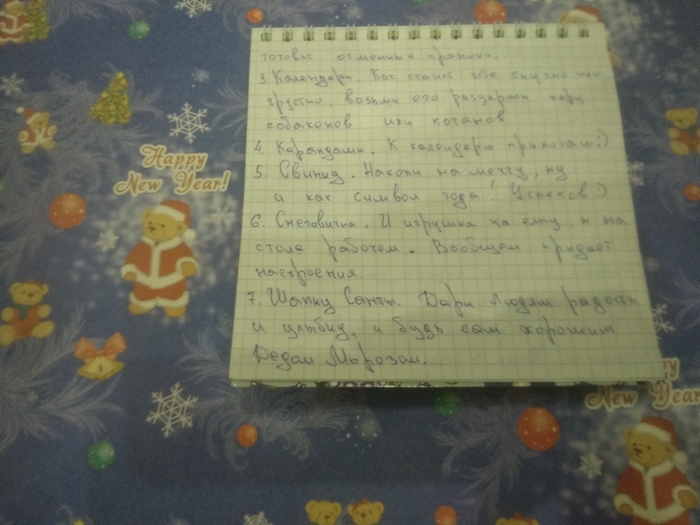 готовы отменные пряники.
3. Календарь. Как станет тебе скучно или
грустно, возьми его раскрась пару
собакенов или котанов
4. Карандаши. К календарю прилагаю:)
5. Свинид. Накопи на мечту, ну
и как символ года! Успехов:)
6. Снеговичка. И игрушка на елку, и на
столе работем. Вообщем придает
настроения.
7. Шапку Санты. Дари людям радость
и улыбку, и будь сам хорошим
Дедом Морозом.
Happy
New Year!
New Year!